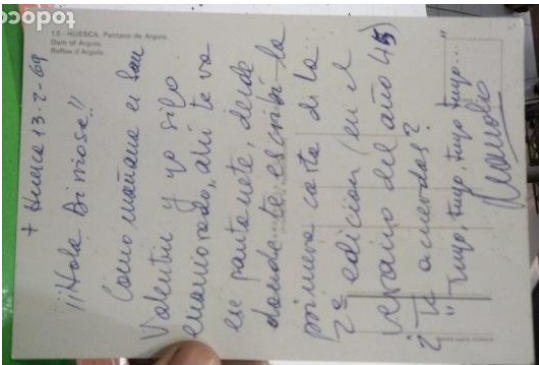 13 - HUESCA. Pantano de Arguis.
Dam of Arguis.
+ Huesca 13-2-69
¡¡Hola Birriosa!!
Como mañana es San
Valentín y yo sigo
enamorado, ahí te va
ese pantanete, desde
donde te escribí la
primera carta de la
2ª edición (en el
verano del año 45)
¿Te acuerdas?
"Tuyo, tuyo, tuyo, tuyo..."
todocol